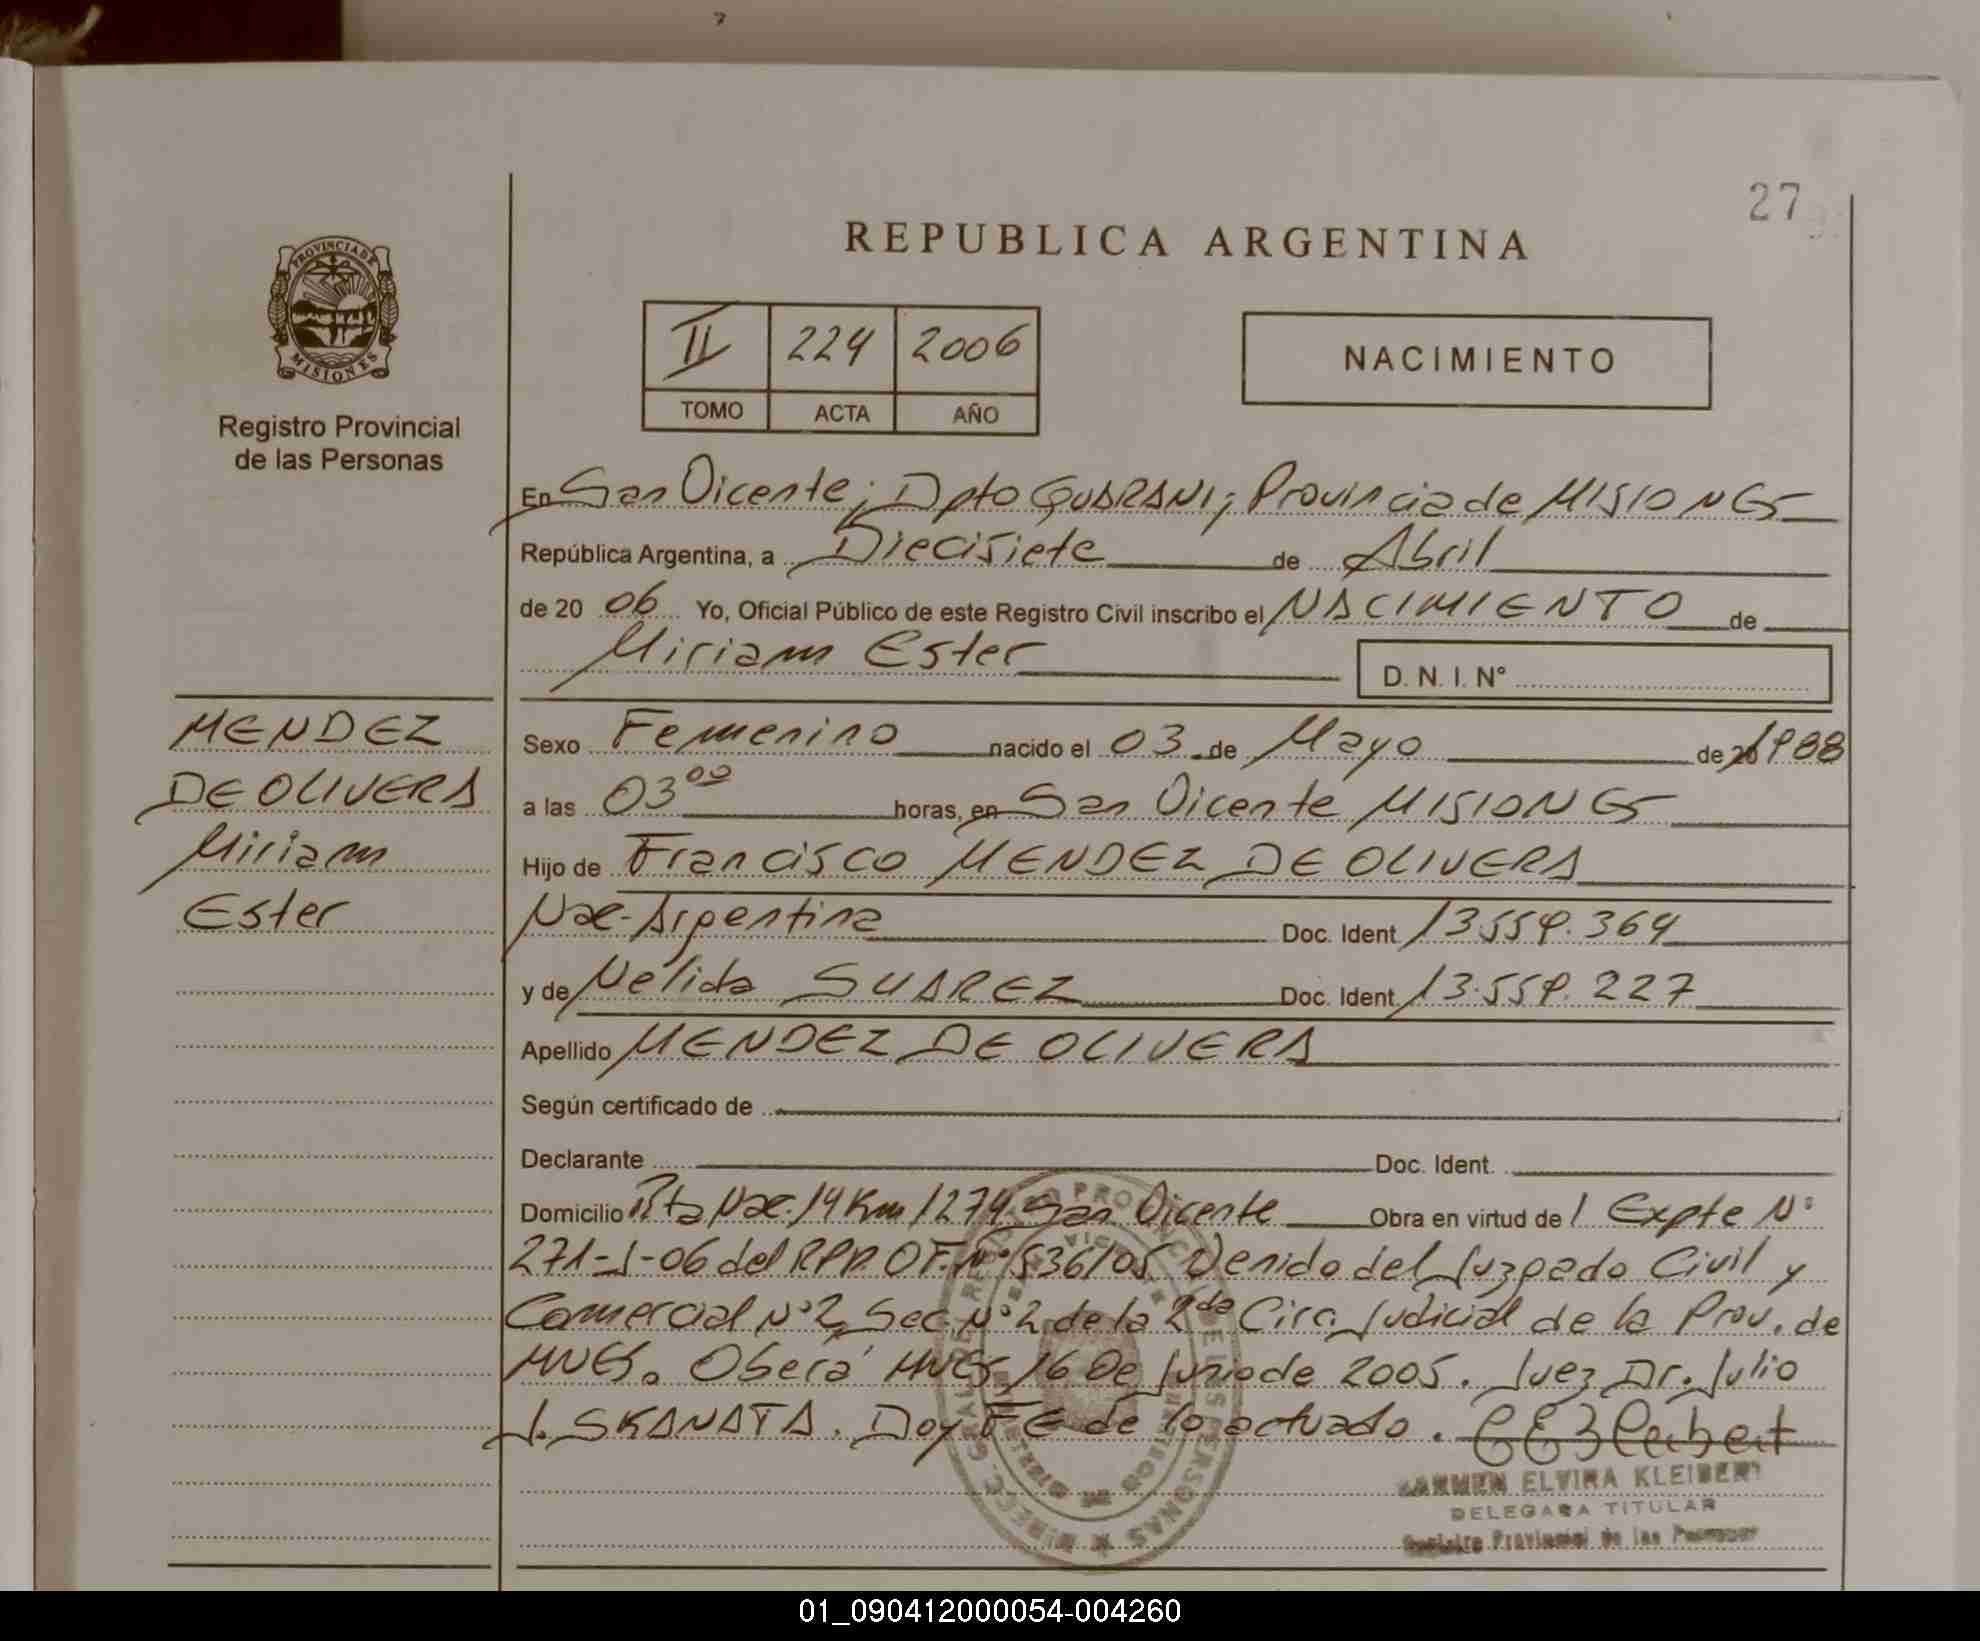 27
REPUBLICA ARGENTINA
PROVINCIA DE
MISIONES
Registro Provincial
de las Personas
II 224 2006
TOMO ACTA AÑO
NACIMIENTO
En San Vicente; Dpto GUARANI; Provincia de MISIONES
República Argentina, a Diecisiete de Abril
de 20 06 Yo, Oficial Público de este Registro Civil inscribo el NACIMIENTO de
Miriam Ester D. N. I. N°
MENDEZ
DE OLIVERA
Miriam
Ester
Sexo Femenino nacido el 03 de Mayo de 20 1988
a las 03 00 horas, en San Vicente MISIONES
Hijo de Francisco MENDEZ DE OLIVERA
Nac- Argentina Doc. Ident 13.559.364
y de Nelida SUAREZ Doc. Ident 13.559.227
Apellido MENDEZ DE OLIVERA
Según certificado de
Declarante Doc. Ident.
Domicilio Rta Nac. 14 Km 1274 San Vicente Obra en virtud de 1 Expte N°
271-J-06 del RPP. OF. N° 536/05 Venido del Juzgado Civil y
Comercial N°2, Sec. N°2 de la 2da Circ. Judicial de la Prov. de
MNES. Oberá MNES 16 De Junio de 2005. Juez Dr. Julio
J. SKANATA. Doy FE de lo actuado.
CARMEN ELVIRA KLEIBERT
DELEGADA TITULAR
Registro Provincial de las Personas
01_090412000054-004260